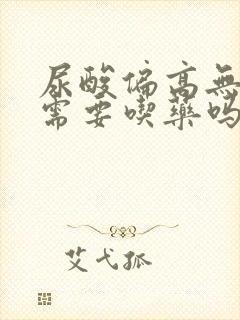 尿酸偏高無
需要喫藥嗎
艾弋孤